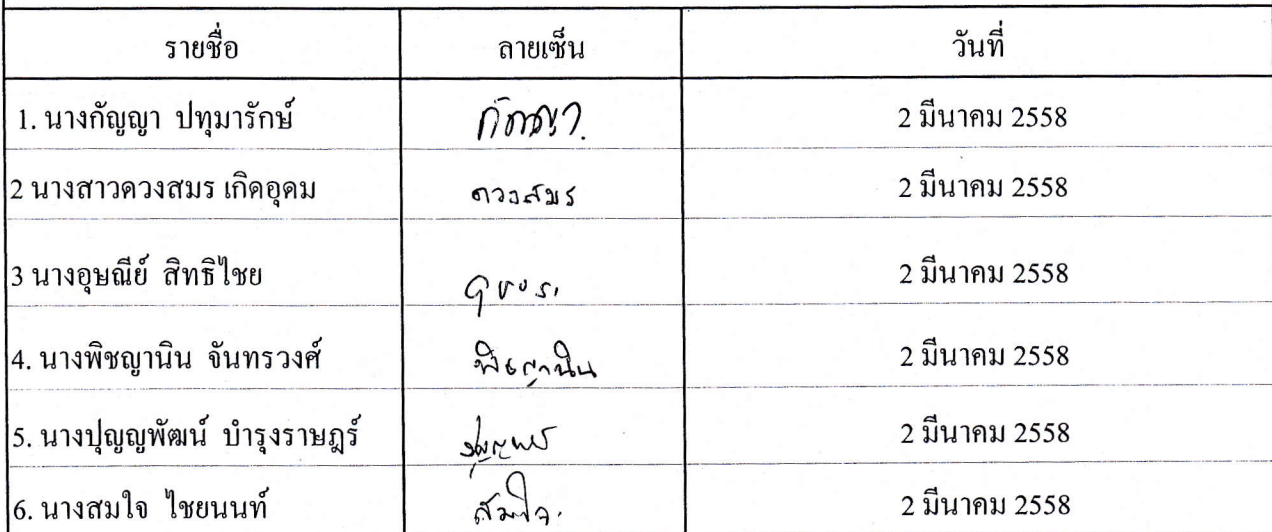 รายชื่อ ลายเซ็น วันที่
1. นางกัญญา ปทุมารักษ์ กัญญา 2 มีนาคม 2558
2 นางสาวดวงสมร เกิดอุดม ดวงสมร 2 มีนาคม 2558
3 นางอุษณีย์ สิทธิไชย 2 มีนาคม 2558
4. นางพิชญานิน จันทรวงศ์ พิชญานิน 2 มีนาคม 2558
5. นางปุญญพัฒน์ บำรุงราษฎร์ 2 มีนาคม 2558
6. นางสมใจ ไชยนนท์ สมใจ 2 มีนาคม 2558